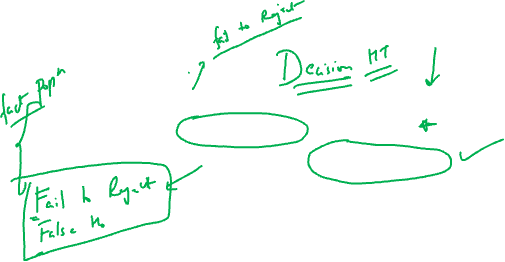 fail to Reject
Decision HT
fact popn
Fail to Reject
False Ho